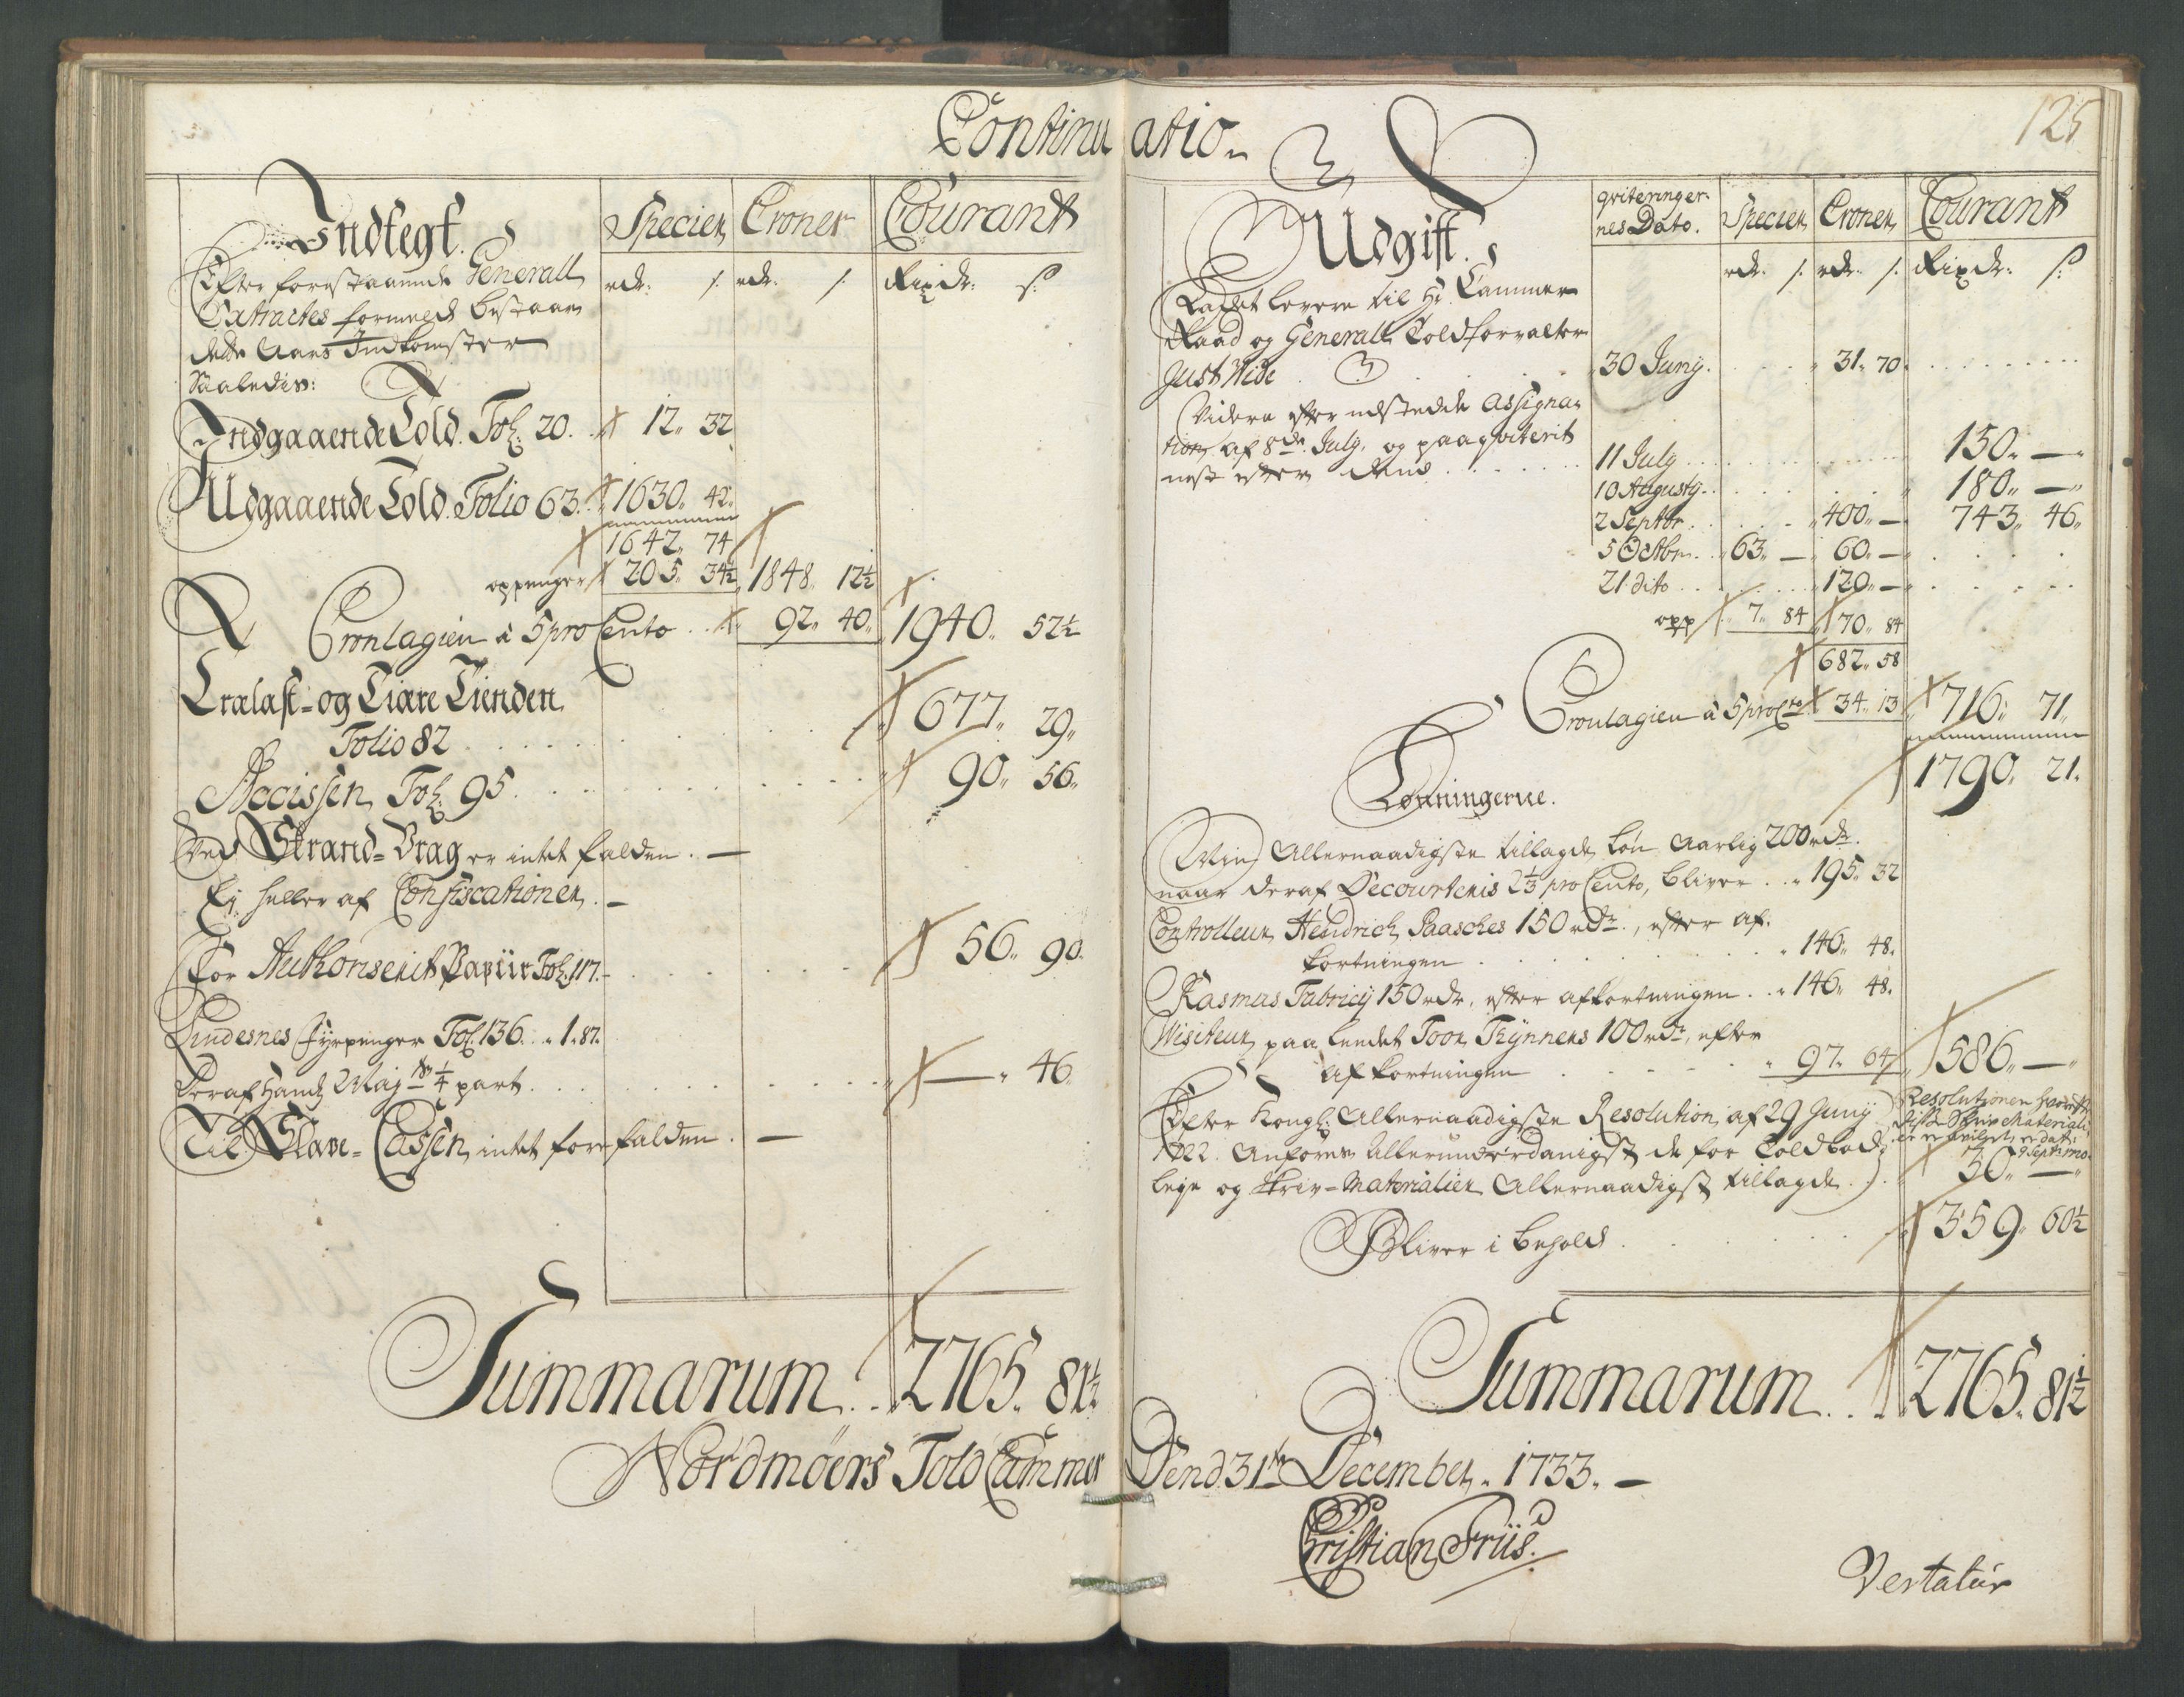 Continuatio
125
Indtegt.
Specier Croner Courant
Efter forestaaende Generall rdr: s. rdr: s. Rixdr: s:
Extractes formeld bestaaer
dette Aars Indkomster
Saaledis:
Indgaaende Told. Fol: 20. 12. 32
Udgaaende Told. Folio 63. 1630. 42.
1642. 74
oppenger 205. 34½ 1848. 12½
Cronlagien à 5 pro Cento 92. 40. 1940. 52½
Trælast- og Tiære Tienden
Folio 82 677. 29.
Accissen, Fol: 95. 90. 56.
Ved Strand-Vrag er intet falden. —
Ej heller af Confiscationer. —
For Authoriserit Papiir Fol: 117. 56. 90.
Lindesnes Fyrpenger Fol. 136. 1. 87.
Deraf Hands Maj ¼ part. — 46.
Til Slave-Cassen, intet forefalden. —
Summarum 2765. 81½
Nordmöers Told Cammer
Udgift.
qviteringer
nes Dato. Specier Croner Courant
rdr. s. rdr. s. Rixdr: s:
Ladet levere til Hr. Cammer
Raad og Generall Toldforvalter
Just Wide 30 Junij. 31. 70.
Videre efter udstedde Assigna
tion af 8de July, og paaqviterit
nest efter dend 11 July 150. —
10 Augusty. 180. —
2 Septbr. 400. — 743. 46.
5 Octbr. 63. — 60. —
21 dito 120. —
opp 7. 84 70. 84
682. 58
Cronlagien à 5 proCto 34. 13 716. 71.
1790. 21.
Lønningerne.
Min Allernaadigste tillagde Løn Aarlig 200 rdr.
naar deraf Decourteris 2⅓ pro Cento, bliver 195. 32
Controlleur Hendrich Paasches 150 rdr., efter af-
kortningen 146. 48.
Rasmus Fabricij 150 rdr, efter afkortningen 146. 48.
Visiteur paa Landet Toor Trynners 100 rdr, efter
afkortningen 97. 64 586. —
Efter Kongl: Allernaadigste Resolution, af 29 Junij
1722. Anføres Allerunderdanigst de for Toldbod-
leje og skriv-Materialier Allernaadigst tillagde 30. —
Resolutionen
Skriv Materiali
9 Septbr
Bliver i behold 359. 60½
Summarum 2765. 81½
Dend 31te December. 1733. —
Christian Friis.
Vertatur